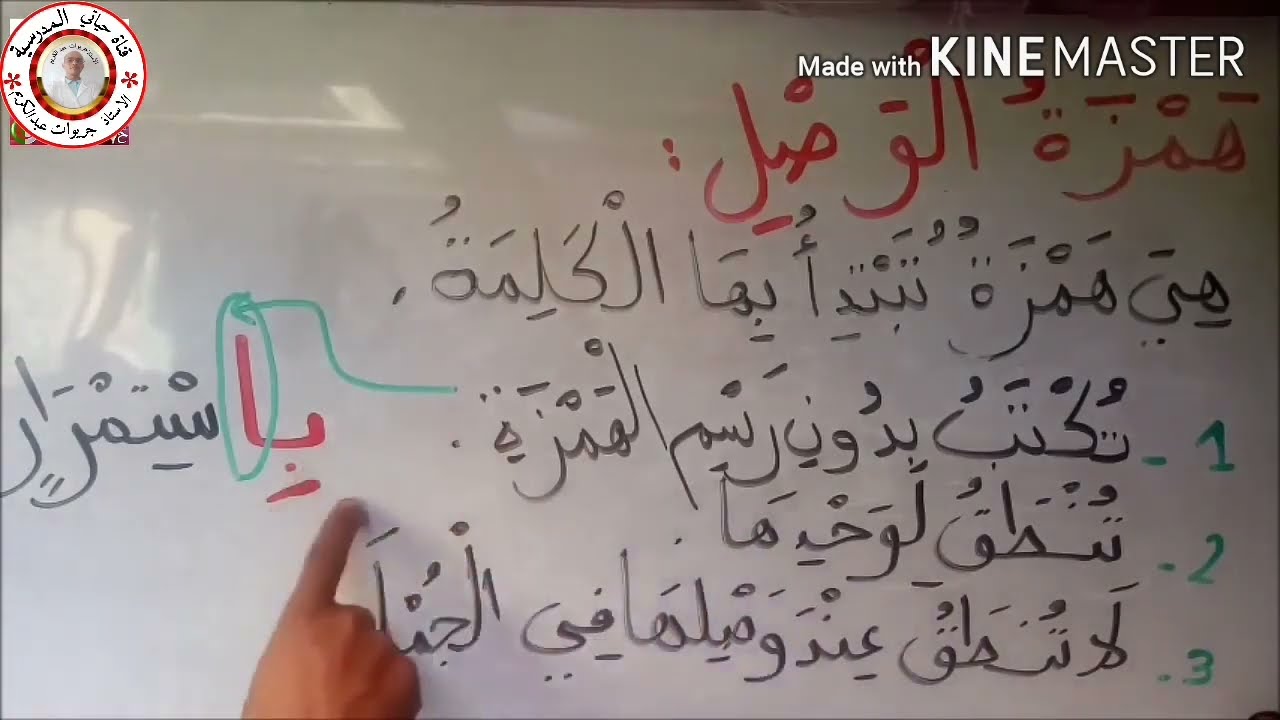 قناة حياتي المدرسية
الاستاذ جريوات عبدالكريم
Made with KINEMASTER
هَمْزَةُ الْوَصْلِ :
هِيَ هَمْزَةٌ تُبْتَدِأُ بِهَا الْكَلِمَةُ .
1 - تُكْتَبُ بِدُونِ رَسْمِ الْهَمْزَةِ .
بِاسْتِمْرَارٍ
2 - تُنْطَقُ لِوَحْدِهَا .
3 . لَا تُنْطَقُ عِنْدَ وَصْلِهَا فِي